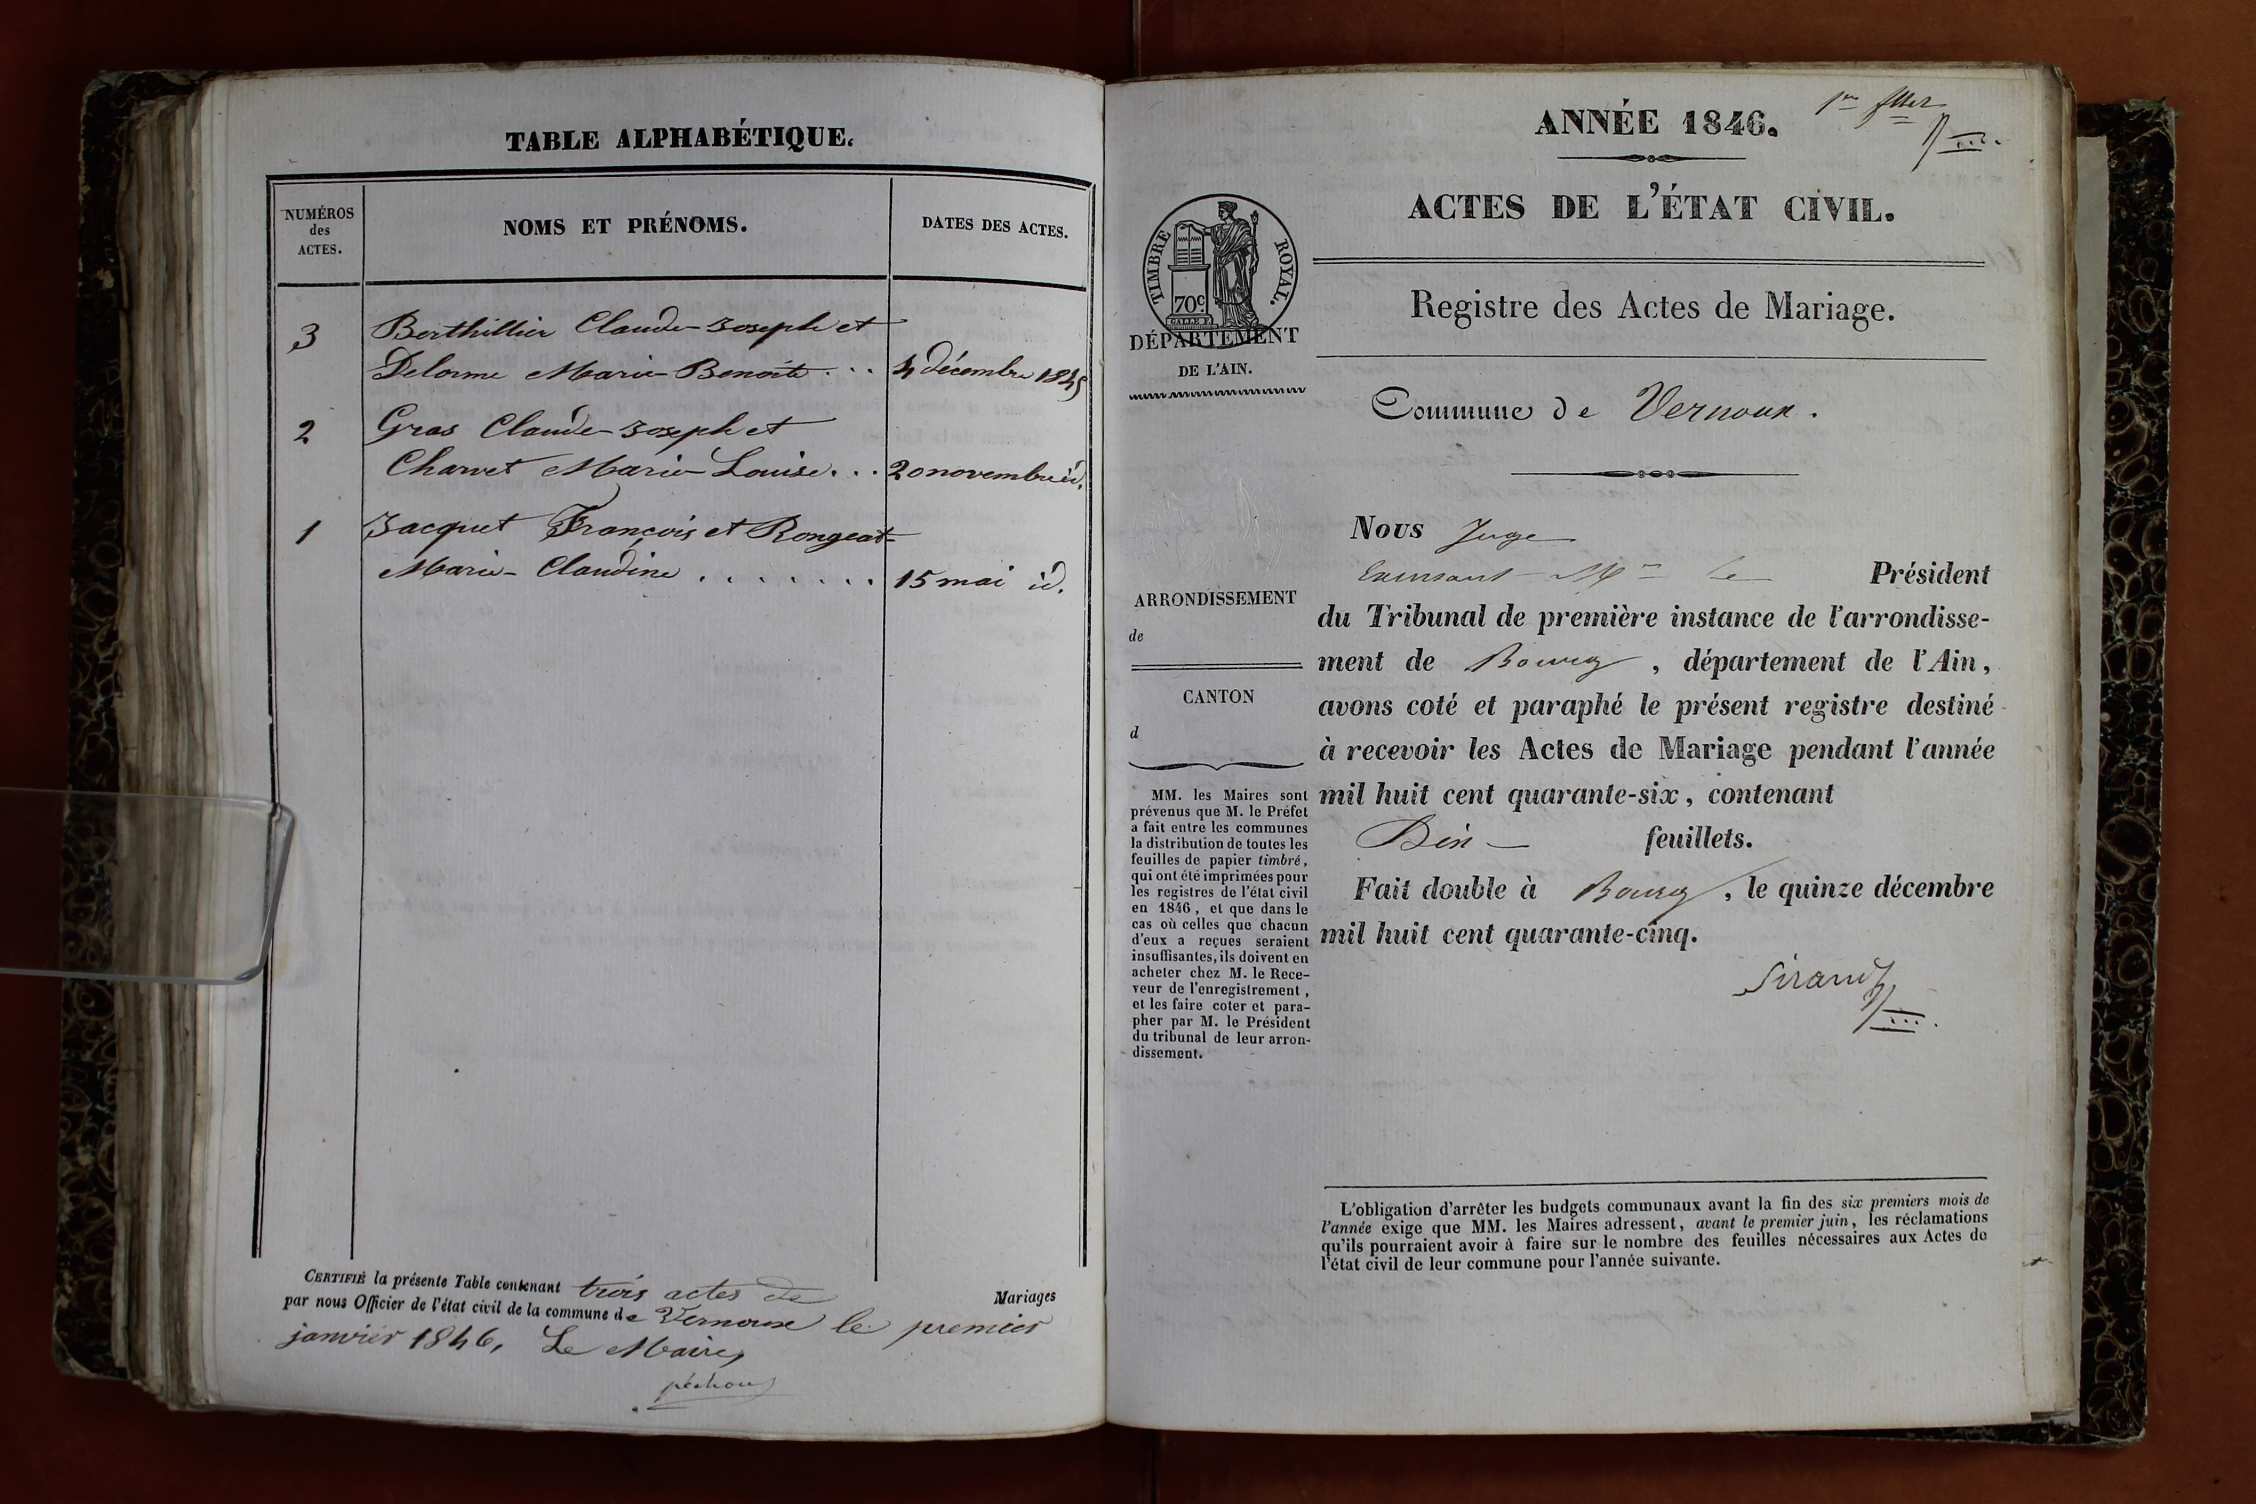 TABLE ALPHABÉTIQUE.
NUMÉROS
des
ACTES.
NOMS ET PRÉNOMS.
DATES DES ACTES.
3
Berthillier Claude-Joseph et
Delorme Marie-Benoite . . . 4 décembre 1845
2
Gras Claude-Joseph et
Charvet Marie-Louise . . . 20 novembre id.
1
Jacquet François et Rongeat
Marie-Claudine . . . . . . . 15 mai id.
CERTIFIÉ la présente Table contenant trois actes de Mariages
par nous Officier de l'état civil de la commune de Vernoux le premier
janvier 1846, Le Maire,
péchoux
1er fllet
ANNÉE 1846.
ACTES DE L'ÉTAT CIVIL.
TIMBRE ROYAL.
70c
DÉPARTEMENT
DE L'AIN.
Registre des Actes de Mariage.
Commune de Vernoux.
ARRONDISSEMENT
de
CANTON
d
MM. les Maires sont
prévenus que M. le Préfet
a fait entre les communes
la distribution de toutes les
feuilles de papier timbré,
qui ont été imprimées pour
les registres de l'état civil
en 1846, et que dans le
cas où celles que chacun
d'eux a reçues seraient
insuffisantes, ils doivent en
acheter chez M. le Rece-
veur de l'enregistrement,
et les faire coter et para-
pher par M. le Président
du tribunal de leur arron-
dissement.
Nous Juge
Mr le Président
du Tribunal de première instance de l'arrondisse-
ment de Bourg, département de l'Ain,
avons coté et paraphé le présent registre destiné
à recevoir les Actes de Mariage pendant l'année
mil huit cent quarante-six, contenant
Dix feuillets.
Fait double à Bourg, le quinze décembre
mil huit cent quarante-cinq.
Sirand
L'obligation d'arrêter les budgets communaux avant la fin des six premiers mois de
l'année exige que MM. les Maires adressent, avant le premier juin, les réclamations
qu'ils pourraient avoir à faire sur le nombre des feuilles nécessaires aux Actes de
l'état civil de leur commune pour l'année suivante.